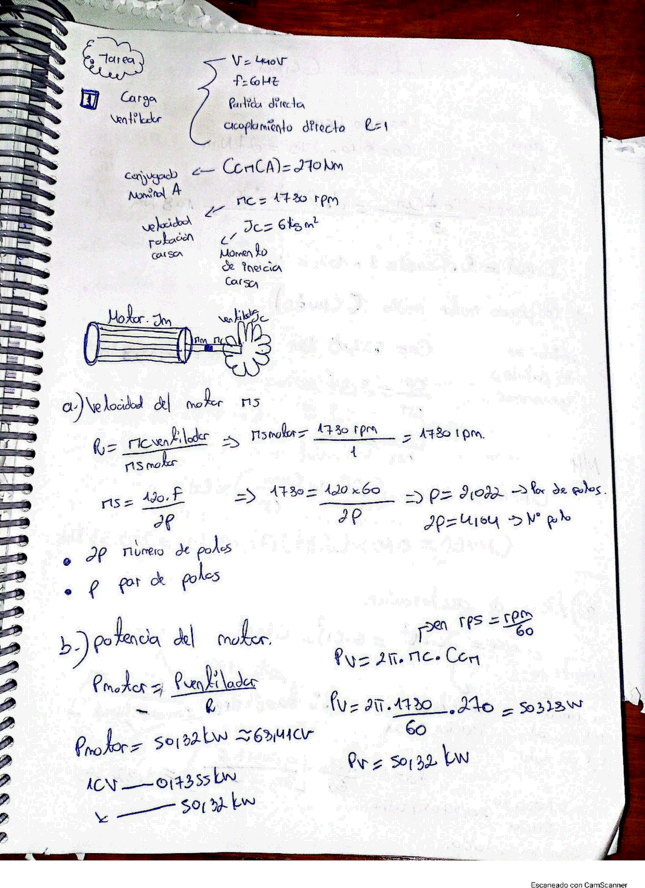 Tarea
1 Carga ventilador
V = 440V
f = 60Hz
Partida directa
acoplamiento directo R=1
conjugado Nominal A ← CCM(A) = 270 Nm
velocidad rotación carga ↙ nc = 1780 rpm
Jc = 6kgm²
Momento de inercia carga
Motor. Jm
ventilador Jc
nm nc
a.) Velocidad del motor ns
R = nc ventilador / ns motor ⇒ ns motor = 1780 rpm / 1 = 1780 rpm.
ns = 120.f / 2p ⇒ 1780 = 120×60 / 2p ⇒ p = 2,022 → Par de polos.
2p = 4,04 → N° polo
• 2p número de polos
• p par de polos
b.) potencia del motor.
en rps = rpm/60
Pmotor = Pventilador / R
PV = 2π. nc. CCM
PV = 2π. 1780/60 .270 = 50328W
Pmotor = 50,32 kW ≈ 68,41CV
PV = 50,32 kW
1CV — 0,7355 kW
x — 50,32 kW
Escaneado con CamScanner